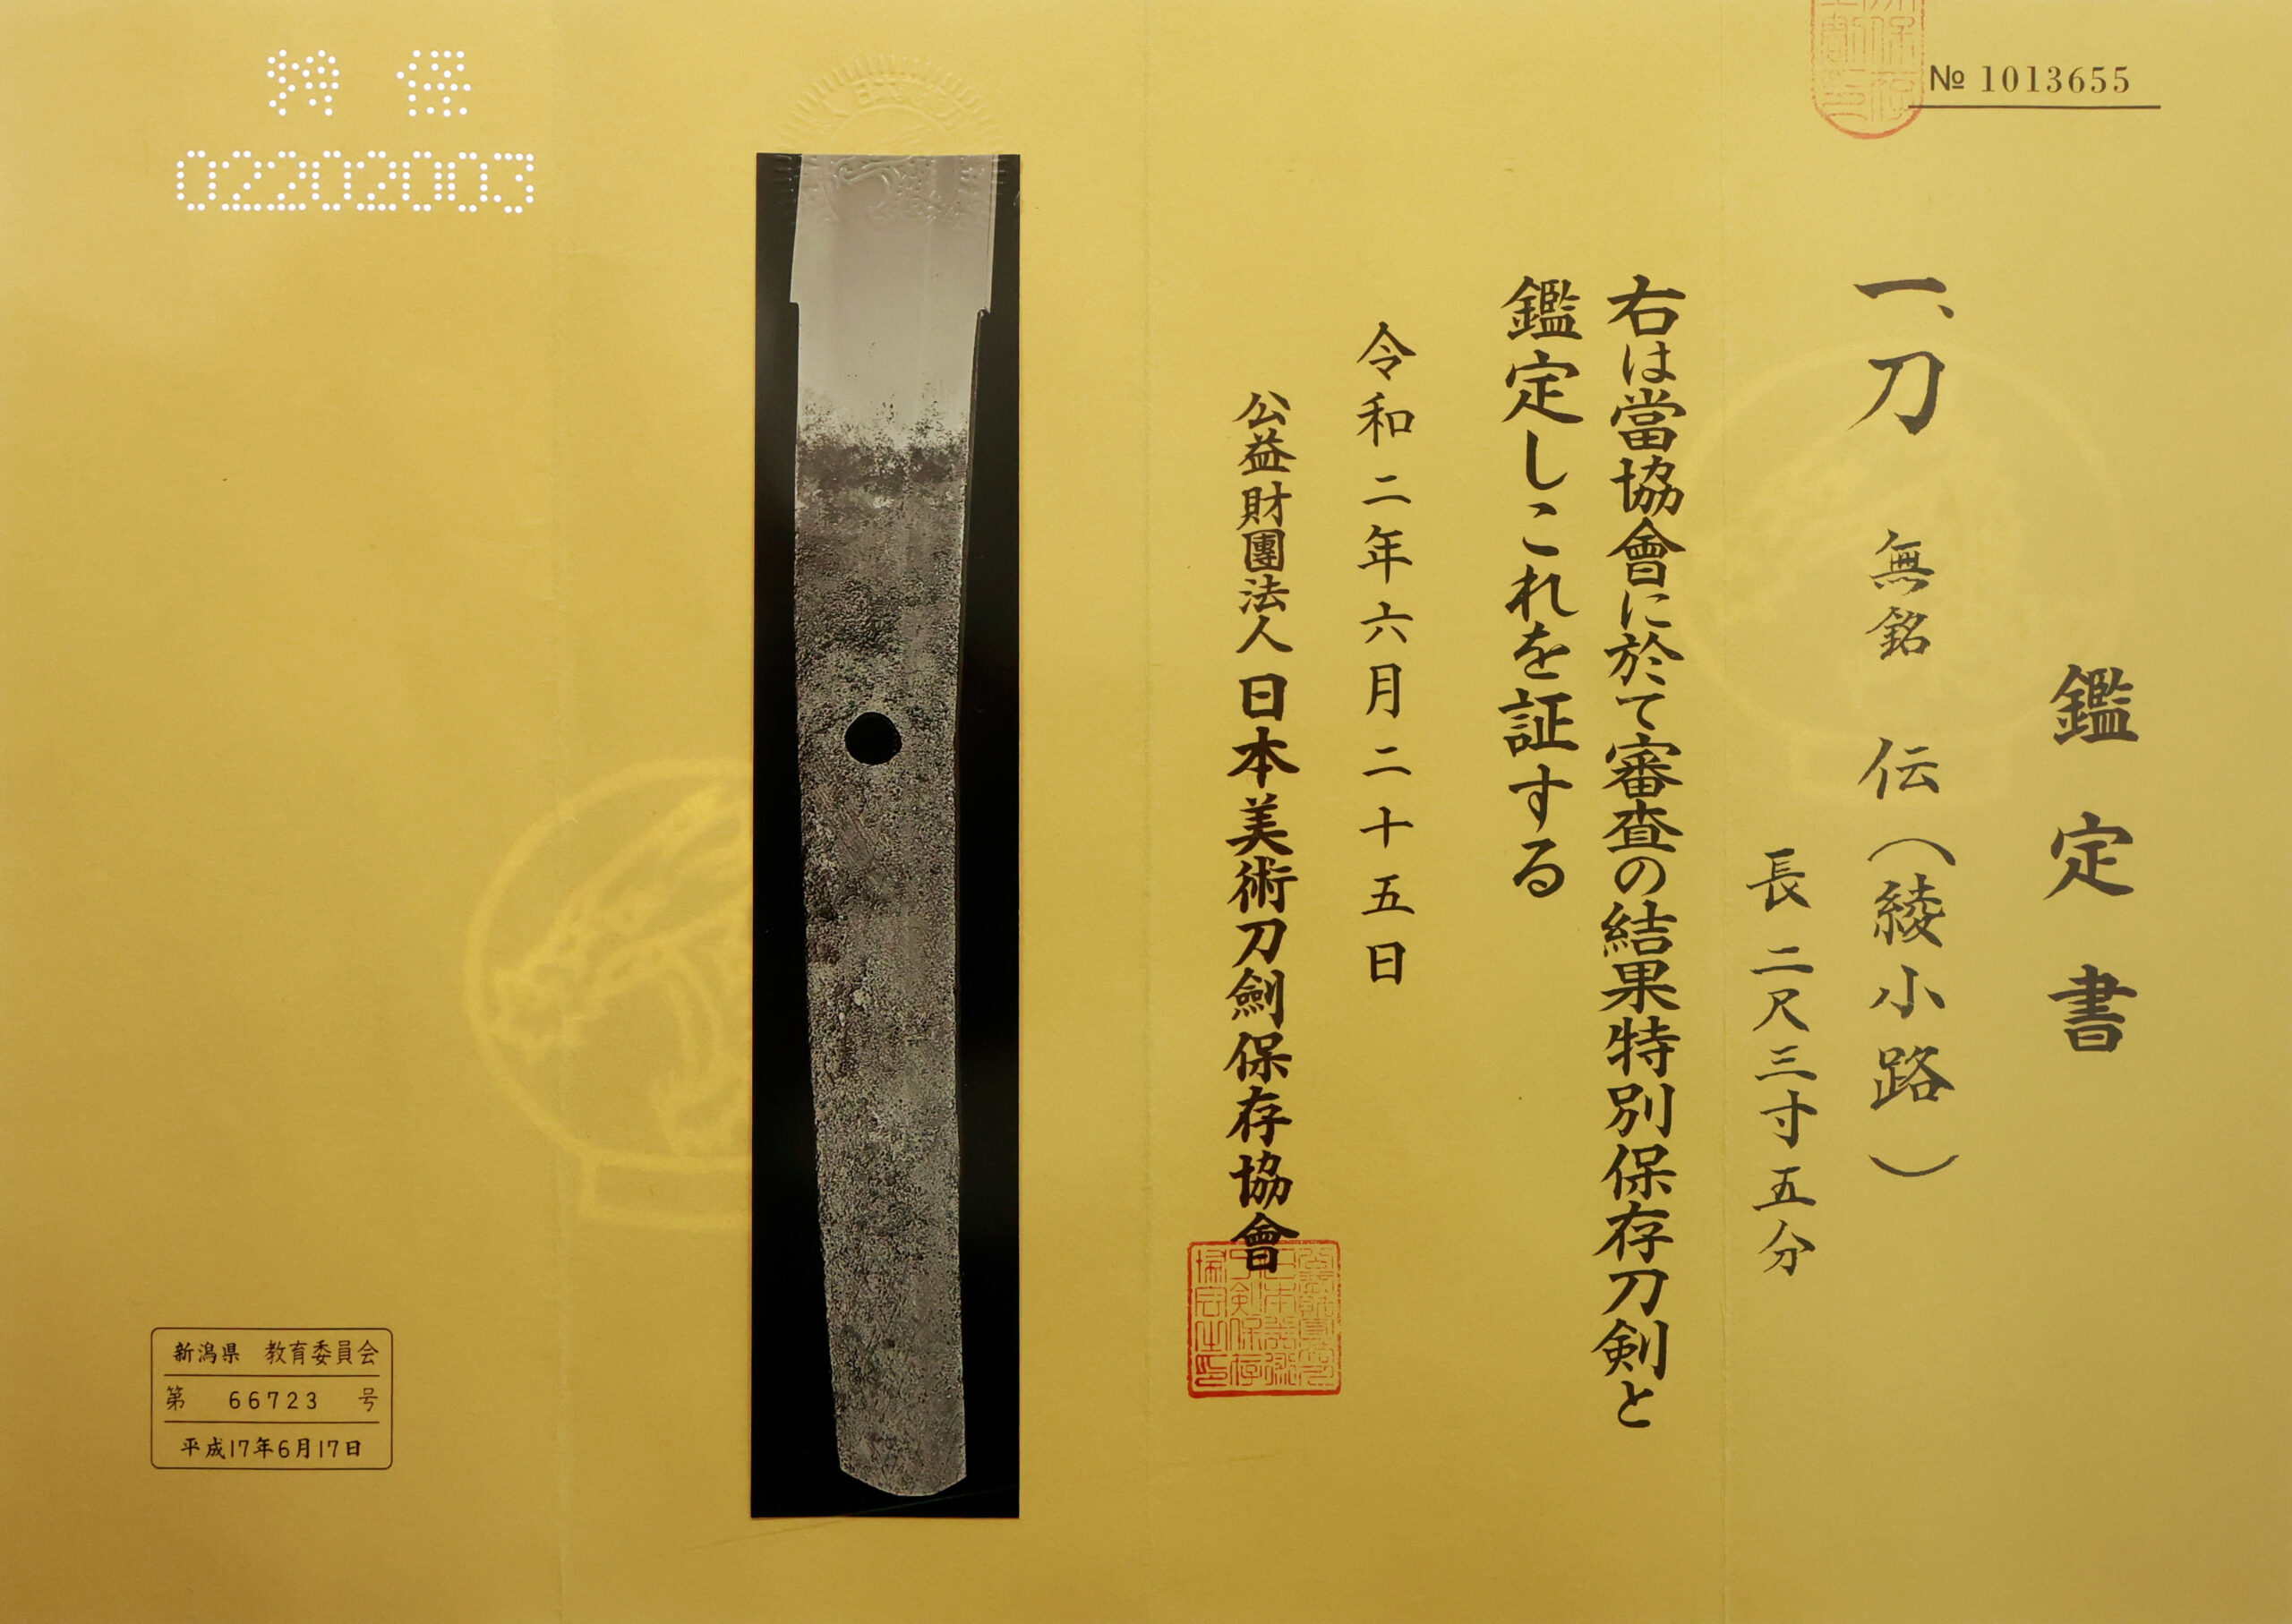 № 1013655
鑑定書
一、刀　無銘　伝（綾小路）
長二尺三寸五分
右は當協會に於て審査の結果特別保存刀剣と
鑑定しこれを証する
令和二年六月二十五日
公益財團法人日本美術刀劍保存協會
特保
02202003
新潟県　教育委員会
第　66723　号
平成17年6月17日